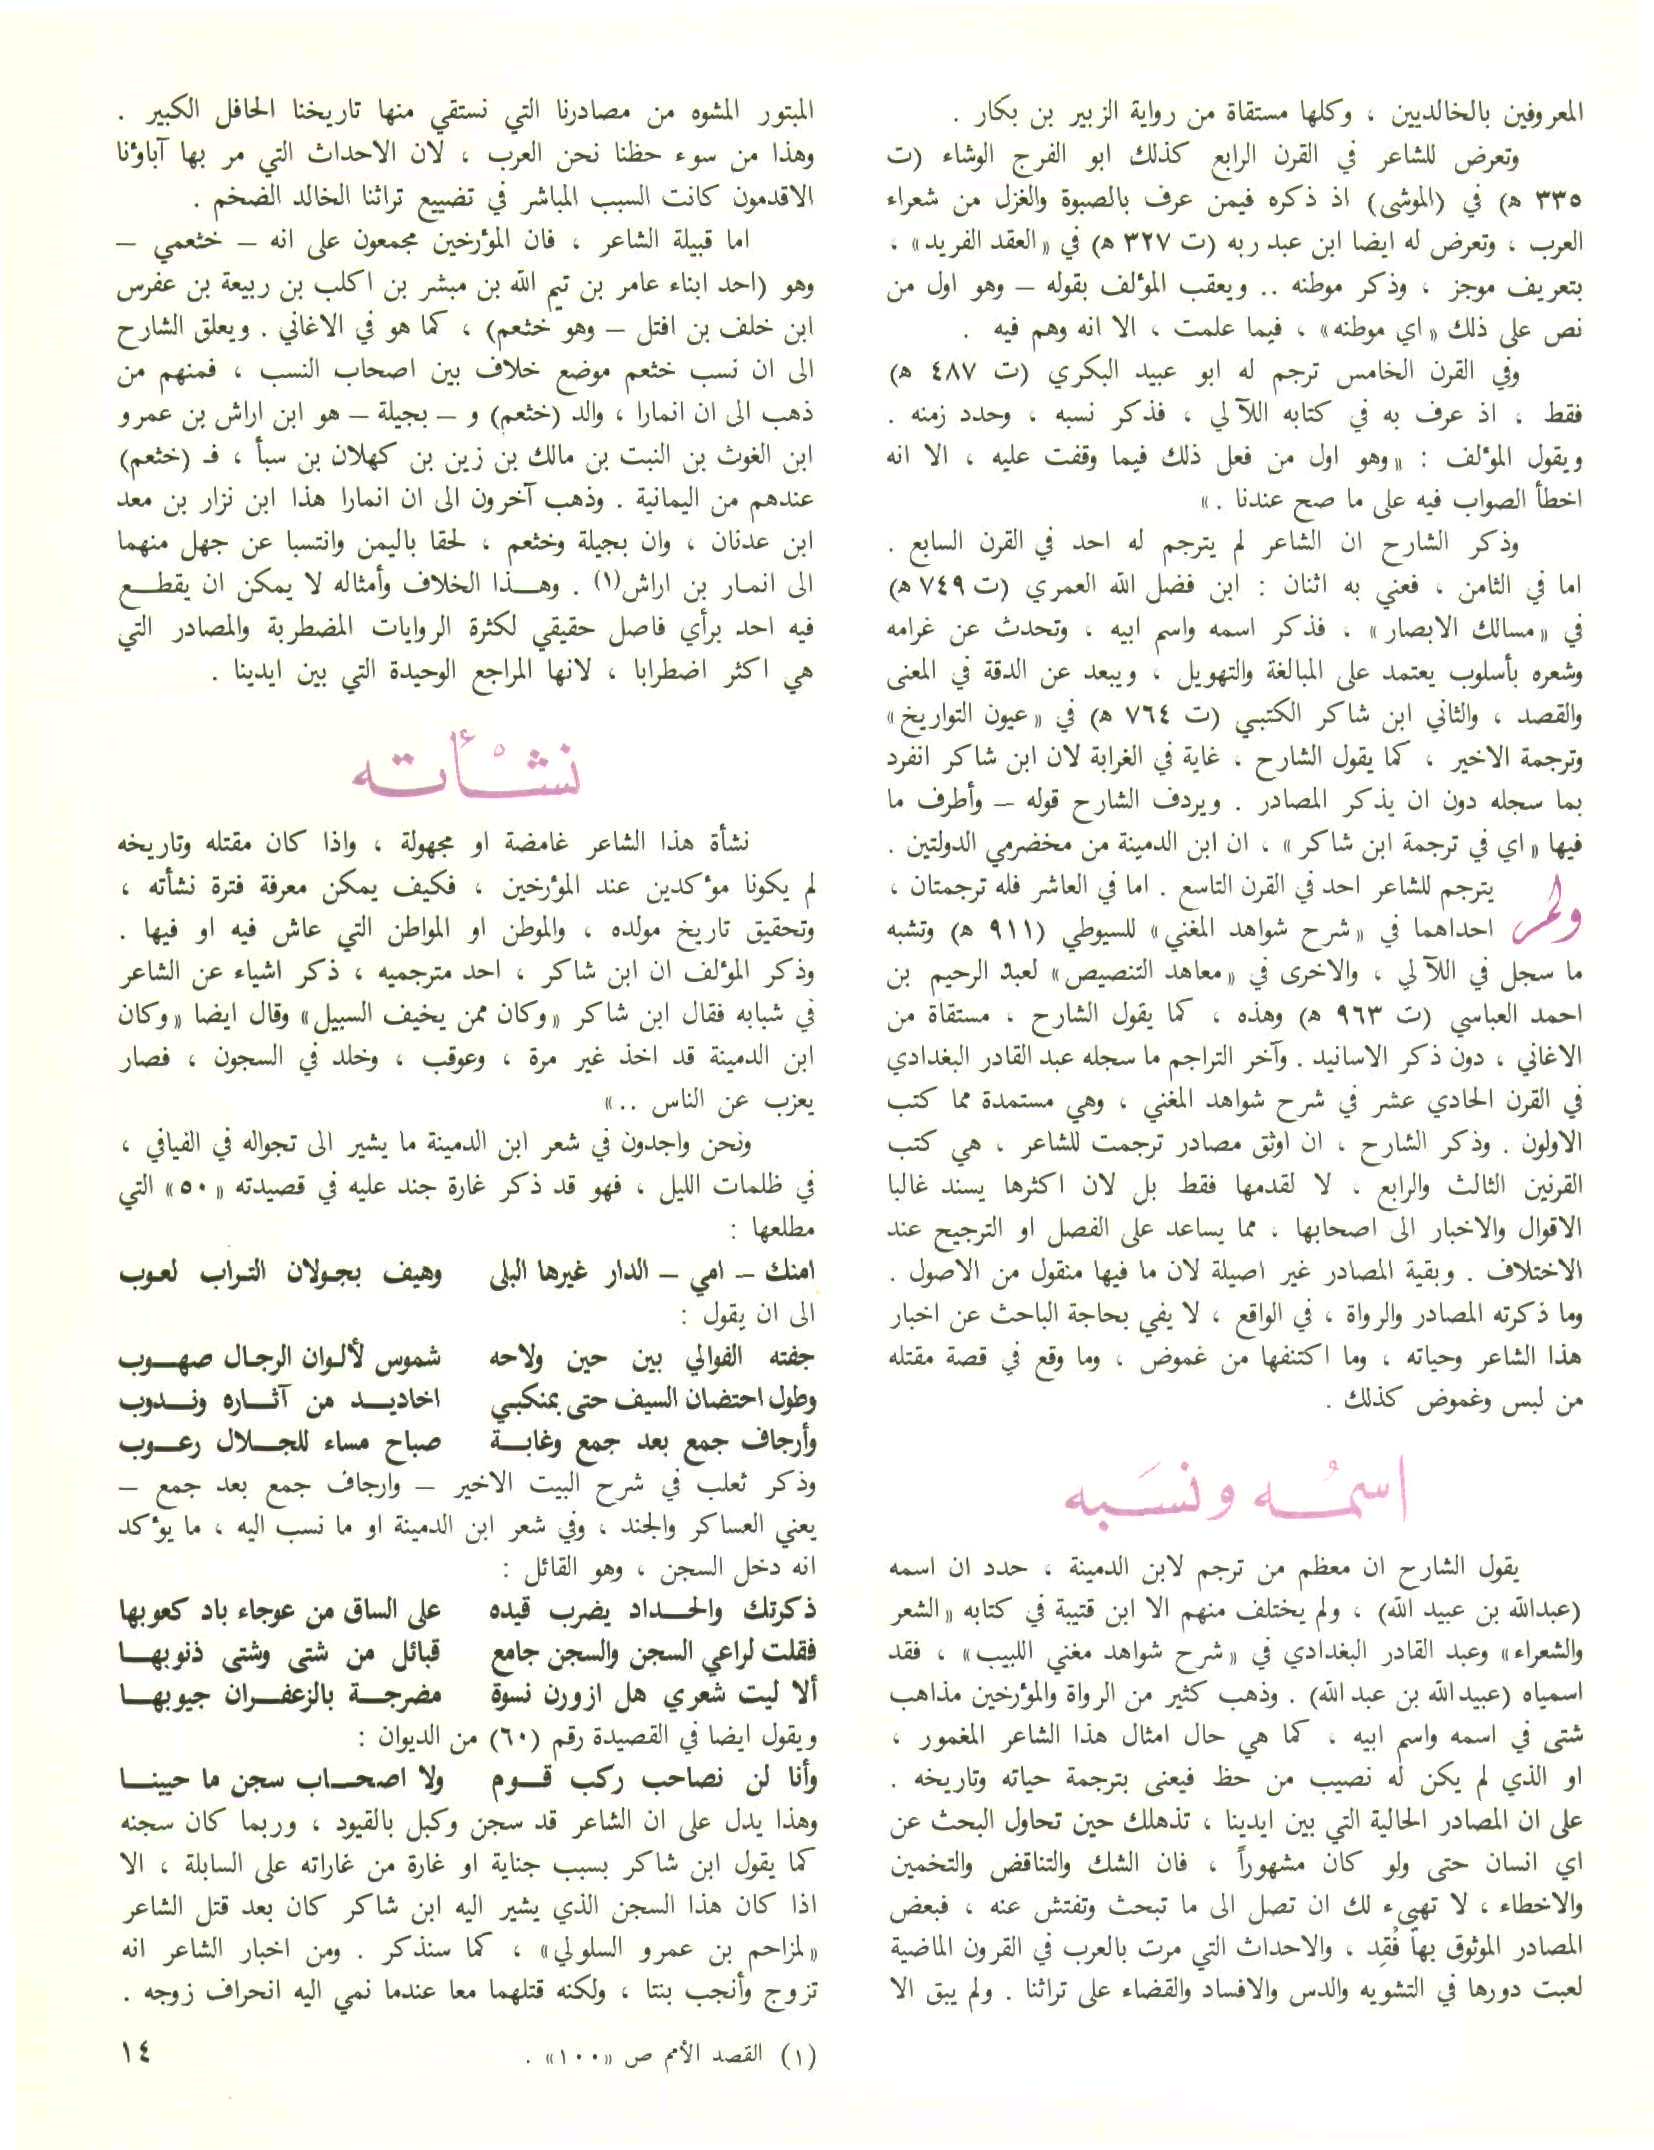 المعروفين بالخالديين ، وكلها مستقاة من رواية الزبير بن بكار .
وتعرض للشاعر في القرن الرابع كذلك ابو الفرج الوشاء (ت
٣٣٥ ه) في (الموشى) اذ ذكره فيمن عرف بالصبوة والغزل من شعراء
العرب ، وتعرض له ايضا ابن عبد ربه (ت ٣٢٧ ه) في «العقد الفريد» ،
بتعريف موجز ، وذكر موطنه .. ويعقب المؤلف بقوله – وهو اول من
نص على ذلك «اي موطنه» ، فيما علمت ، الا انه وهم فيه .
وفي القرن الخامس ترجم له ابو عبيد البكري (ت ٤٨٧ ه)
فقط ، اذ عرف به في كتابه اللآلي ، فذكر نسبه ، وحدد زمنه .
ويقول المؤلف : «وهو اول من فعل ذلك فيما وقفت عليه ، الا انه
اخطأ الصواب فيه على ما صح عندنا .»
وذكر الشارح ان الشاعر لم يترجم له احد في القرن السابع .
اما في الثامن ، فعني به اثنان : ابن فضل الله العمري (ت ٧٤٩ ه)
في «مسالك الابصار» ، فذكر اسمه واسم ابيه ، وتحدث عن غرامه
وشعره بأسلوب يعتمد على المبالغة والتهويل ، ويبعد عن الدقة في المعنى
والقصد ، والثاني ابن شاكر الكتبي (ت ٧٦٤ ه) في «عيون التواريخ»
وترجمة الاخير ، كما يقول الشارح ، غاية في الغرابة لان ابن شاكر انفرد
بما سجله دون ان يذكر المصادر . ويردف الشارح قوله – وأطرف ما
فيها «اي في ترجمة ابن شاكر» ، ان ابن الدمينة من مخضرمي الدولتين .
ولم يترجم للشاعر احد في القرن التاسع . اما في العاشر فله ترجمتان ،
احداهما في «شرح شواهد المغني» للسيوطي (٩١١ ه) وتشبه
ما سجل في اللآلي ، والاخرى في «معاهد التنصيص» لعبد الرحيم بن
احمد العباسي (ت ٩٦٣ ه) وهذه ، كما يقول الشارح ، مستقاة من
الاغاني ، دون ذكر الاسانيد . وآخر التراجم ما سجله عبد القادر البغدادي
في القرن الحادي عشر في شرح شواهد المغني ، وهي مستمدة مما كتب
الاولون . وذكر الشارح ، ان اوثق مصادر ترجمت للشاعر ، هي كتب
القرنين الثالث والرابع ، لا لقدمها فقط بل لان اكثرها يسند غالبا
الاقوال والاخبار الى اصحابها ، مما يساعد على الفصل او الترجيح عند
الاختلاف . وبقية المصادر غير اصيلة لان ما فيها منقول من الاصول .
وما ذكرته المصادر والرواة ، في الواقع ، لا يفي بحاجة الباحث عن اخبار
هذا الشاعر وحياته ، وما اكتنفها من غموض ، وما وقع في قصة مقتله
من لبس وغموض كذلك .
اسمُه ونسَبه
يقول الشارح ان معظم من ترجم لابن الدمينة ، حدد ان اسمه
(عبدالله بن عبيد الله) ، ولم يختلف منهم الا ابن قتيبة في كتابه «الشعر
والشعراء» وعبد القادر البغدادي في «شرح شواهد مغني اللبيب» ، فقد
اسمياه (عبيدالله بن عبد الله) . وذهب كثير من الرواة والمؤرخين مذاهب
شتى في اسمه واسم ابيه ، كما هي حال امثال هذا الشاعر المغمور ،
او الذي لم يكن له نصيب من حظ فيعنى بترجمة حياته وتاريخه .
على ان المصادر الحالية التي بين ايدينا ، تذهلك حين تحاول البحث عن
اي انسان حتى ولو كان مشهوراً ، فان الشك والتناقض والتخمين
والاخطاء ، لا تهيىء لك ان تصل الى ما تبحث وتفتش عنه ، فبعض
المصادر الموثوق بها فُقِد ، والاحداث التي مرت بالعرب في القرون الماضية
لعبت دورها في التشويه والدس والافساد والقضاء على تراثنا . ولم يبق الا
المبتور المشوه من مصادرنا التي نستقي منها تاريخنا الحافل الكبير .
وهذا من سوء حظنا نحن العرب ، لان الاحداث التي مر بها آباؤنا
الاقدمون كانت السبب المباشر في تضييع تراثنا الخالد الضخم .
اما قبيلة الشاعر ، فان المؤرخين مجمعون على انه – خثعمي –
وهو (احد ابناء عامر بن تيم الله بن مبشر بن اكلب بن ربيعة بن عفرس
ابن خلف بن افتل – وهو خثعم) ، كما هو في الاغاني . ويعلق الشارح
الى ان نسب خثعم موضع خلاف بين اصحاب النسب ، فمنهم من
ذهب الى ان انمارا ، والد (خثعم) و – بجيلة – هو ابن اراش بن عمرو
ابن الغوث بن النبت بن مالك بن زين بن كهلان بن سبأ ، فـ (خثعم)
عندهم من اليمانية . وذهب آخرون الى ان انمارا هذا ابن نزار بن معد
ابن عدنان ، وان بجيلة وخثعم ، لحقا باليمن وانتسبا عن جهل منهما
الى انمار بن اراش(١) . وهذا الخلاف وأمثاله لا يمكن ان يقطع
فيه احد برأي فاصل حقيقي لكثرة الروايات المضطربة والمصادر التي
هي اكثر اضطرابا ، لانها المراجع الوحيدة التي بين ايدينا .
نشْأته
نشأة هذا الشاعر غامضة او مجهولة ، واذا كان مقتله وتاريخه
لم يكونا مؤكدين عند المؤرخين ، فكيف يمكن معرفة فترة نشأته ،
وتحقيق تاريخ مولده ، والموطن او المواطن التي عاش فيه او فيها .
وذكر المؤلف ان ابن شاكر ، احد مترجميه ، ذكر اشياء عن الشاعر
في شبابه فقال ابن شاكر «وكان ممن يخيف السبيل» وقال ايضا «وكان
ابن الدمينة قد اخذ غير مرة ، وعوقب ، وخلد في السجون ، فصار
يعزب عن الناس ..»
ونحن واجدون في شعر ابن الدمينة ما يشير الى تجواله في الفيافي ،
في ظلمات الليل ، فهو قد ذكر غارة جند عليه في قصيدته «٥٠» التي
مطلعها :
امنك – امي – الدار غيرها البلى وهيف بجولان التراب لعوب
الى ان يقول :
جفته الفوالي بين حين ولاحه شموس لألوان الرجال صهوب
وطول احتضان السيف حتى بمنكبي اخاديد من آثاره وندوب
وأرجاف جمع بعد جمع وغابة صباح مساء للجلال رعوب
وذكر ثعلب في شرح البيت الاخير – وارجاف جمع بعد جمع –
يعني العساكر والجند ، وفي شعر ابن الدمينة او ما نسب اليه ، ما يؤكد
انه دخل السجن ، وهو القائل :
ذكرتك والحداد يضرب قيده على الساق من عوجاء باد كعوبها
فقلت لراعي السجن والسجن جامع قبائل من شتى وشتى ذنوبها
ألا ليت شعري هل ازورن نسوة مضرجة بالزعفران جيوبها
ويقول ايضا في القصيدة رقم (٦٠) من الديوان :
وأنا لن نصاحب ركب قوم ولا اصحاب سجن ما حيينا
وهذا يدل على ان الشاعر قد سجن وكبل بالقيود ، وربما كان سجنه
كما يقول ابن شاكر بسبب جناية او غارة من غاراته على السابلة ، الا
اذا كان هذا السجن الذي يشير اليه ابن شاكر كان بعد قتل الشاعر
«لمزاحم بن عمرو السلولي» ، كما سنذكر . ومن اخبار الشاعر انه
تزوج وأنجب بنتا ، ولكنه قتلهما معا عندما نمي اليه انحراف زوجه .
(١) القصد الأمم ص «١٠٠» .
١٤